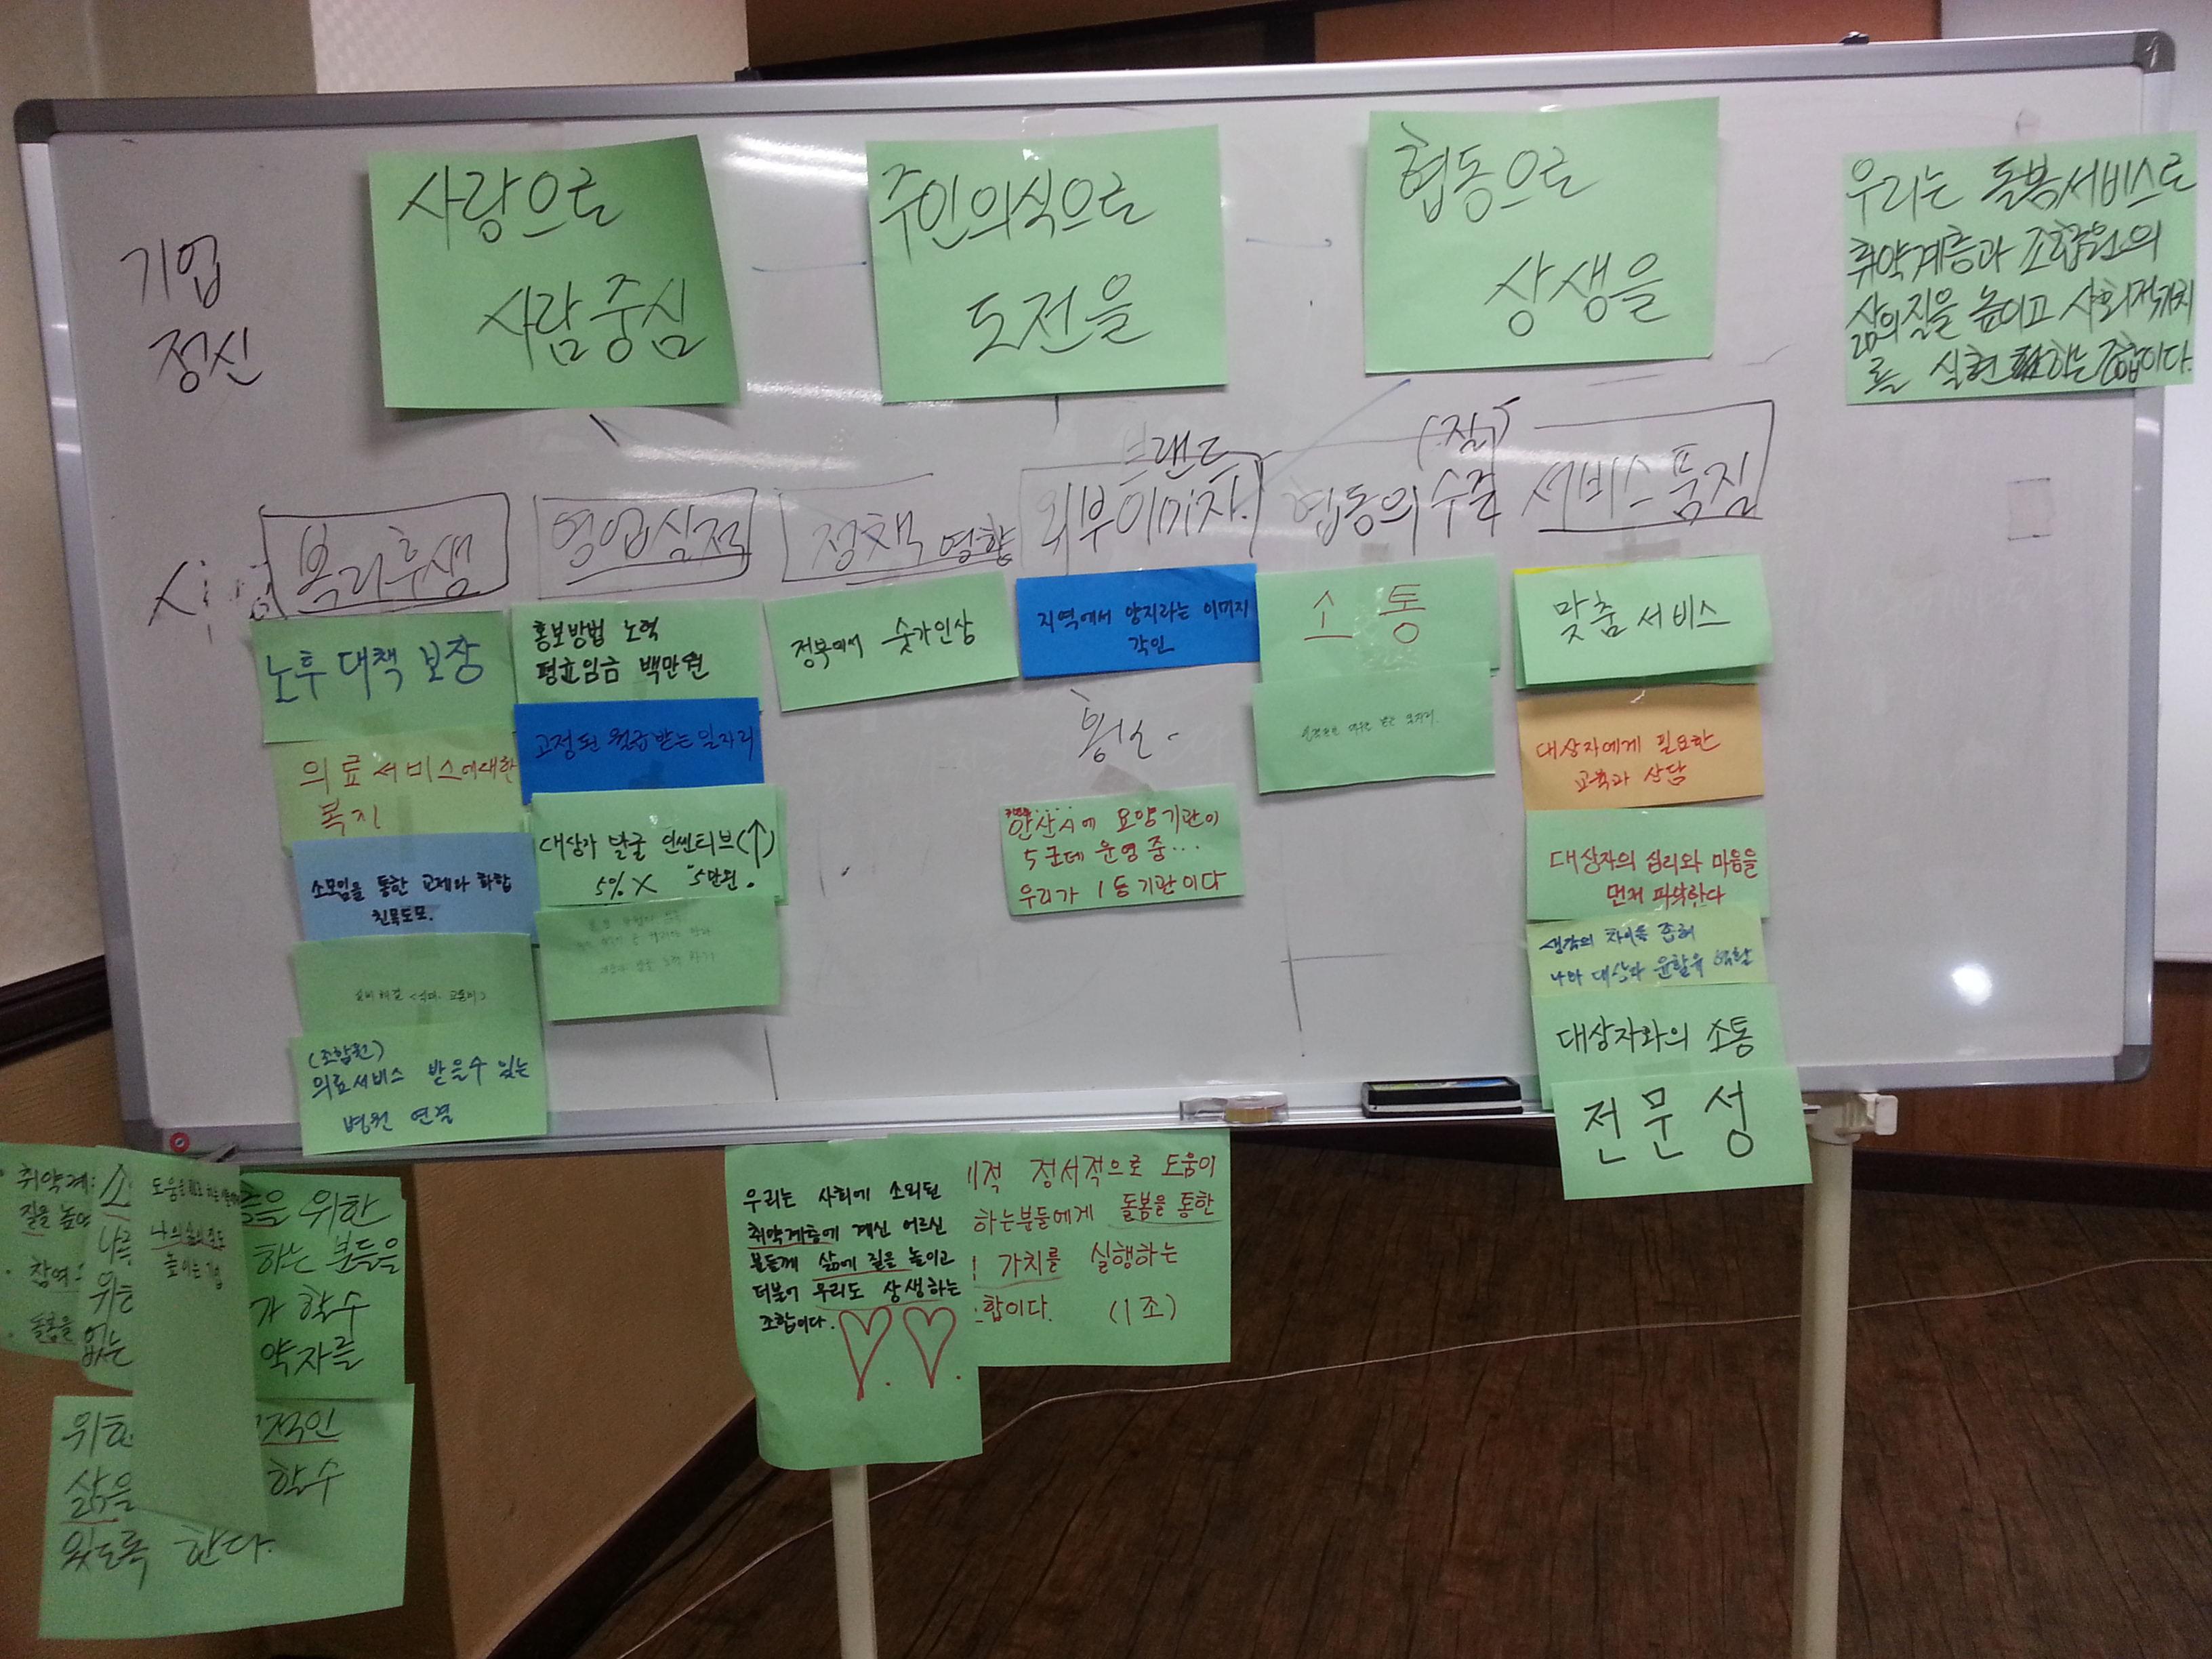 기업
정신
사랑으로
사람중심
주인의식으로
도전을
협동으로
상생을
우리는 돌봄서비스로
취약계층과 조합원의
삶의질을 높이고 사회적가치
를 실현하는 조합이다.
복리후생
영업실적
정책영향
브랜드
외부이미지
(질)
협동의 수준
서비스품질
노후대책 보장
의료서비스에대한
복지
소모임을 통한 교제와 화합
친목도모.
(조합원)
의료서비스 받을수 있는
병원 연결
홍보방법 노력
평균임금 백만원
고정된 월급받는일자리
대상자 발굴 인센티브(↑)
5% X "5만원.
정부에서 숫가인상
지역에서 양지라는 이미지
각인
안산시에 요양기관이
5군데 운영중...
우리가 1등기관이다
소통
맞춤서비스
대상자에게 필요한
교육과 상담
대상자의 심리와 마음을
먼저 파악한다
생각의 차이를 좁혀
나와 대상자 윤활유 역할
대상자와의 소통
전문성
우리는 사회에 소외된
취약계층에 계신 어르신
분들께 삶에 질을 높이고
더불어 우리도 상생하는
조합이다.
적 정서적으로 도움이
하는분들에게 돌봄을 통한
가치를 실행하는
합이다. (1조)
취약계
질을 높
참여
돌봄을
없는
나의 삶의 질도
높이는 기업
을 위한
하는 분들을
가 할수
약자를
위한
적인
삶을
할수
있도록 한다.